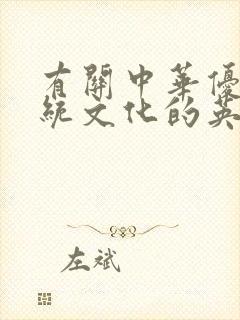 有關中華優
統文化的英
左斌